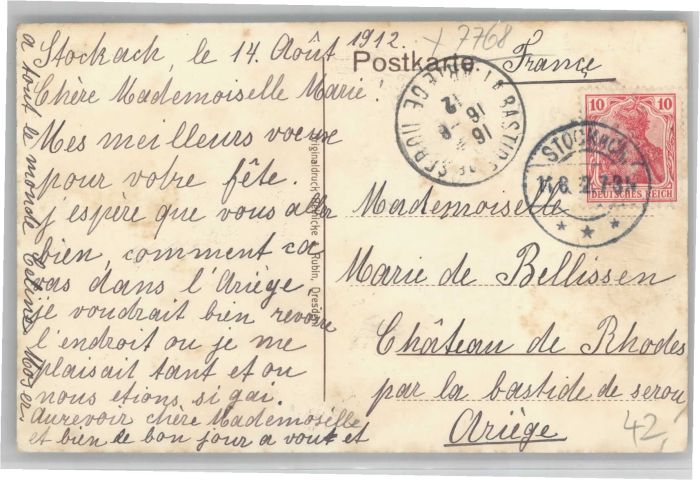 Stockach, le 14. Août 1912.
Chère Mademoiselle Marie!
Mes meilleurs voeux
pour votre fête.
j'espère que vous aller
bien, comment ca
vas dans l'Ariége
je voudrait bien revoire
l'endroit ou je me
plaisait tant et ou
nous etions si gai.
Aurevoir chère Mademoiselle
et bien le bon jour a vous et
a tout le monde
Postkarte.
x 7768
France
LA BASTIDE DE SEROU
16
16 - 8
12
10 10
DEUTSCHES REICH
STOCKACH
Mademoiselle
Marie de Bellissen
Château de Rhodes
par la bastide de serou
Ariège
42,
Rubin, Dresden